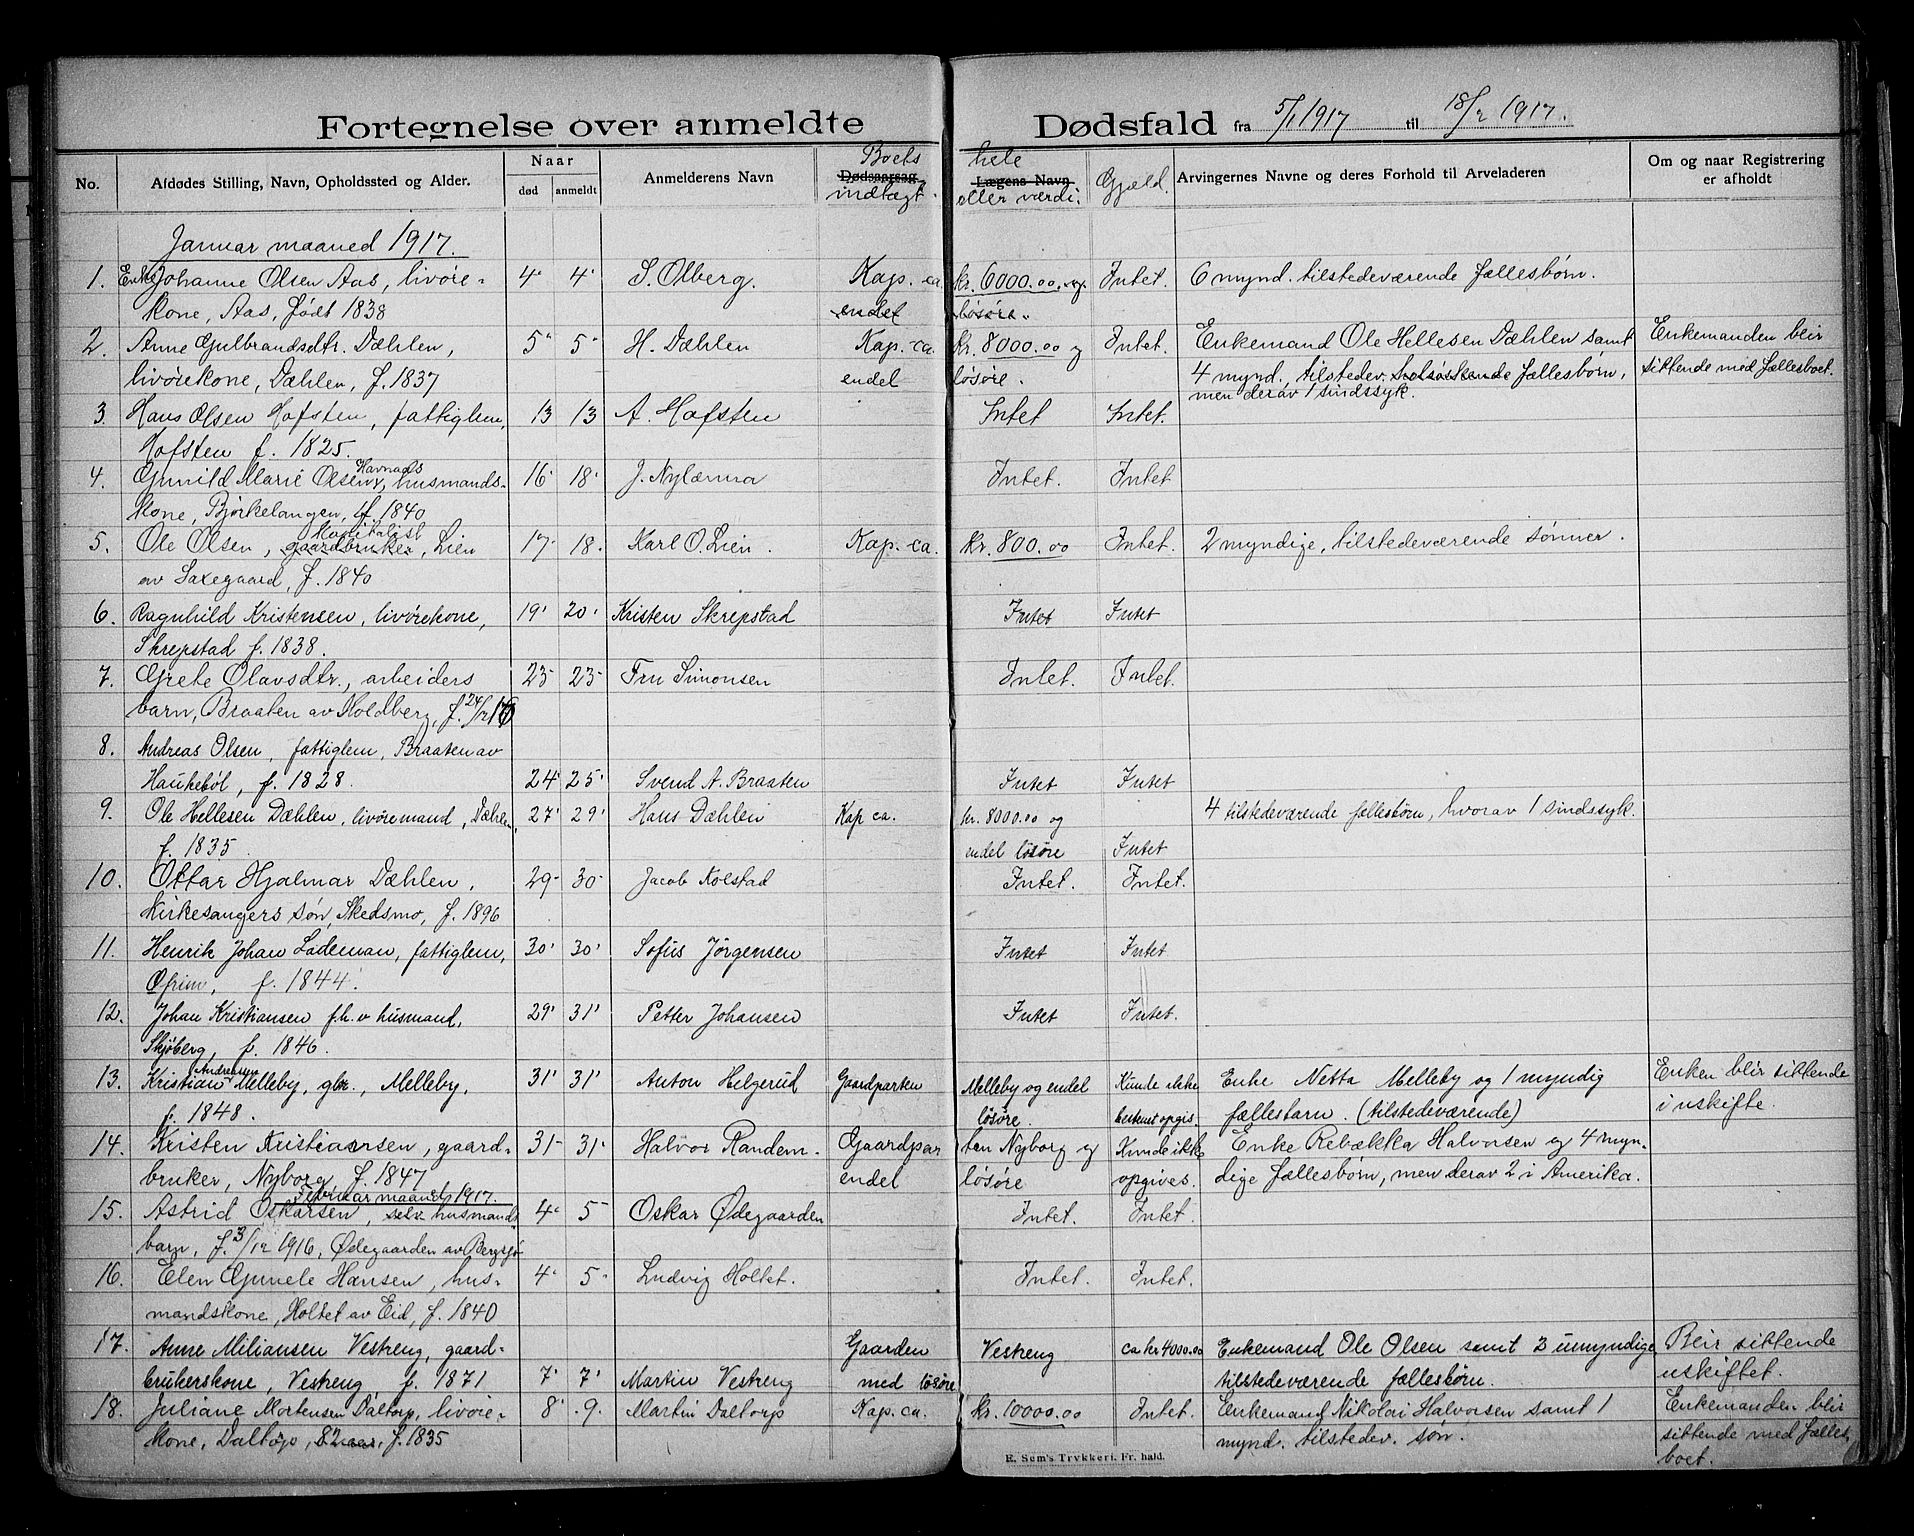 Fortegnelse over anmeldte Dødsfald fra 5/1 1917 til 18/2 1917.
No. Afdødes Stilling, Navn, Opholdssted og Alder. Naar død anmeldt Anmelderens Navn Dødsaarsag Boets indtægt. Lægens Navn hele eller værdi. Gjæld. Arvingernes Navne og deres Forhold til Arveladeren Om og naar Registrering er afholdt
Januar maaned 1917.
1. Enke Johanne Olsen Aas, livøre- 4' 4' S. Olberg. Kap. ca. kr. 6000.00. og Intet. 6 mynd. tilstedeværende fællesbørn.
kone, Aas, født 1838 endel løsøre.
2. Anne Gulbrandsdtr. Dæhlen, 5' 5' H. Dæhlen Kap. ca. kr. 8000.00 og Intet. Enkemand Ole Hellesen Dæhlen samt Enkemanden blir
livørekone, Dæhlen, f. 1837 endel løsøre. 4 mynd. tilstedev. fællesbørn, sittende med fællesboet.
men derav 1 sindssyk.
3. Hans Olsen Hofsten, fattiglem, 13 13 A. Hofsten Intet Intet.
Hofsten f. 1825.
4. Gunild Marie Olsen Havnaas, husmands- 16' 18' J. Nylænna Intet. Intet
kone, Bjørkelangen, f. 1840
5. Ole Olsen, gaardbruker, Kapitalist Lien 17' 18. Karl O. Lien. Kap. ca. kr. 800.00 Intet. 2 myndige, tilstedeværende sønner.
av Saxegaard, f. 1840
6. Ragnhild Kristensen, livørekone, 19' 20' Kristen Skrepstad Intet Intet
Skrepstad f. 1838.
7. Grete Olavsdtr., arbeiders 23- 23- Fru Simonsen Intet. Intet.
barn, Braaten av Holdberg, f. 24/12 16
8. Andreas Olsen, fattiglem, Braaten av
Haukebøl, f. 1828. 24' 25' Svend A. Braaten Intet Intet
9. Ole Hellesen Dæhlen, livøremand, Dæhlen, 27' 29' Hans Dæhlen Kap ca. kr. 8000.00 og 4 tilstedeværende fællesbørn, hvorav 1 sindssyk.
f. 1835. endel løsøre Intet
10. Ottar Hjalmar Dæhlen, 29- 30- Jacob Kolstad Intet. Intet.
Kirkesangers søn, Skedsmo, f. 1896
11. Henrik Johan Lademan, fattiglem, 30' 30' Sofus Jørgensen Intet Intet
f. 1844.
12. Johan Kristiansen f.h.v husmand, 29' 31' Petter Johansen Intet Intet.
Skjøberg, f. 1846.
13. Kristian Andreassen Melleby, gbr., Melleby, 31' 31' Anton Helgerud Gaardparten Melleby og endel Kunde ikke Enke Netta Melleby og 1 myndig Enken blir sittende
f. 1848. løsøre. bestemt opgis fællesbarn. (tilstedeværende) i uskifte.
14. Kristen Kristiansen, gaard- 31- 31' Halvor Randem. Gaardpar ten Nyborg og Kunde ikke Enke Rebækka Halvorsen og 4 myn-
bruker, Nyborg f. 1847 endel løsøre opgives. dige fællesbørn, men derav 2 i Amerika.
Februar maaned 1917.
15. Astrid Oskarsen, selv. husmands- 4' 5- Oskar Ødegaarden Intet. Intet.
barn, f. 3/12 1916, Ødegaarden av Bergsjø
16. Elen Gunele Hansen, hus- 4' 5- Ludvig Holtet. Intet. Intet.
mandskone, Holtet av Eid, f. 1840
17. Anne Miliansen Vestreng, gaard- Gaarden Vestreng ca kr 4000.00 Enkemand Ole Olsen samt 3 umyndige Blir sittende
brukerskone, Vestreng f. 1871 7' 7' Martin Vestreng med løsøre tilstedeværende fællesbørn. uskiftet.
18. Juliane Mortensen Daltorp, livøre- 8' 9. Martin Daltorp Kap. ca. kr. 10000.00 Intet. Enkemand Nikolai Halvorsen samt 1 Enkemanden blir
kone, Daltorp, 82 aar, f. 1835 mynd. tilstedev. søn. sittende med fælles-
boet.
E. Sem's Trykkeri. Fr. hald.